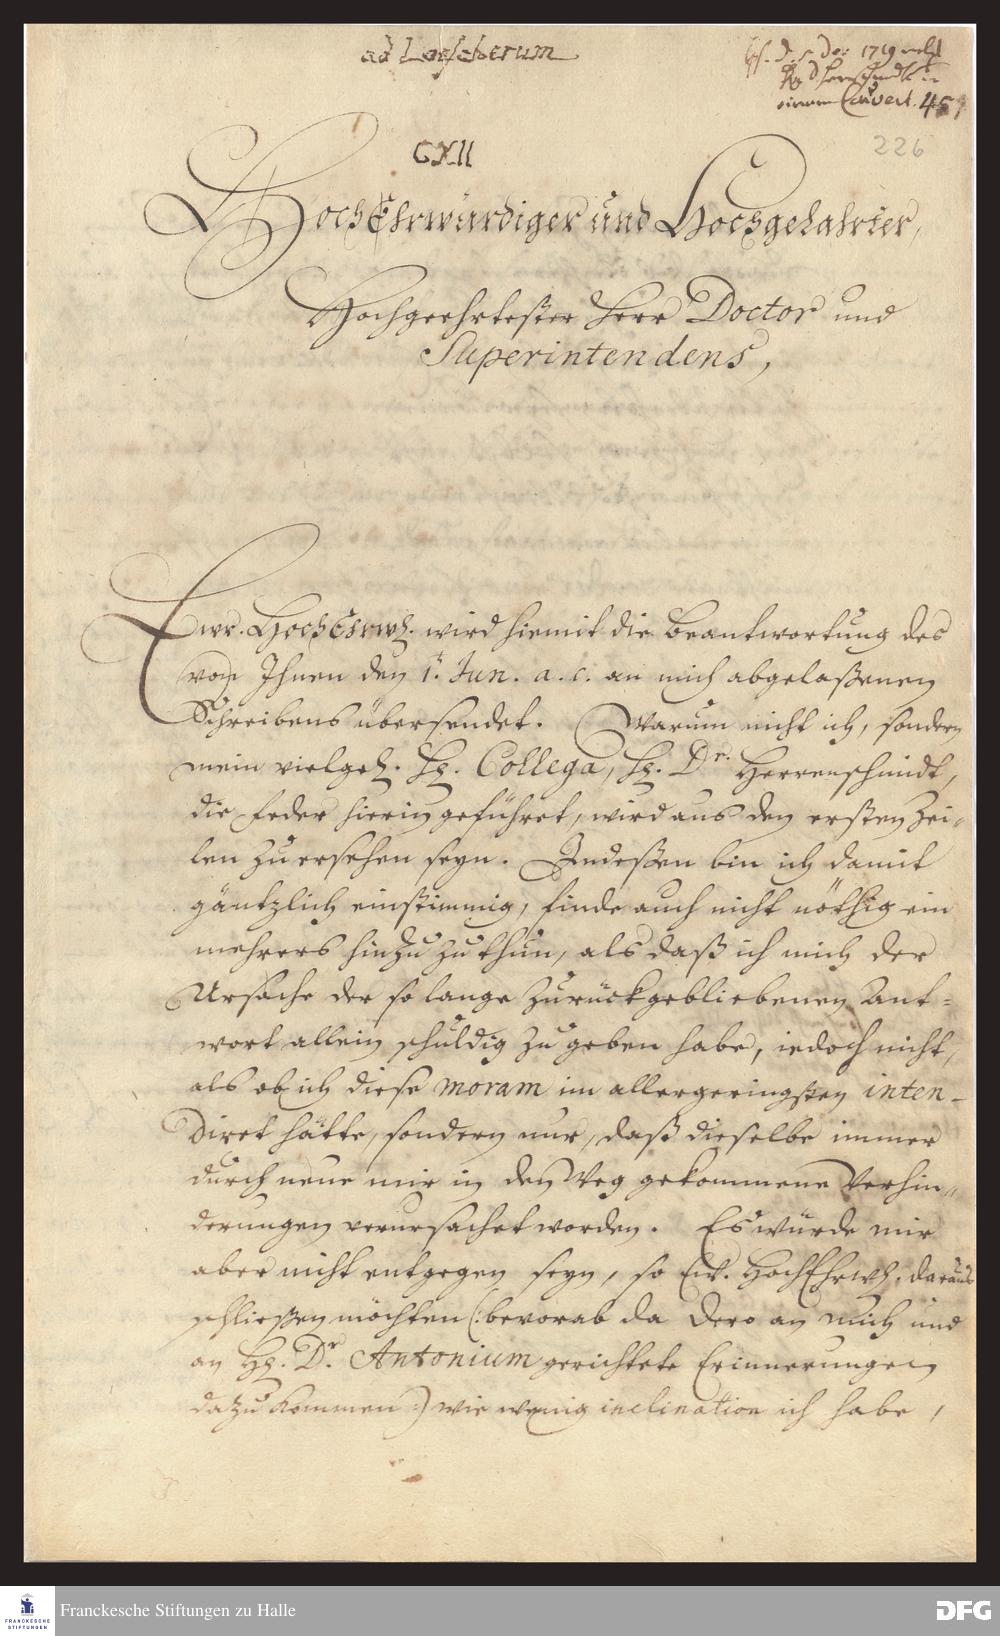 ad Loescherum
d. 5 Dec. 1719
einem Couvert. 451
226
CXII
HochEhrwürdiger und Hochgelahrter,
Hochgeehrtester Herr Doctor und
Superintendens,
Ewr. HochEhrw. wird hiemit die Beantwortung des
von Ihnen den 1. Jun. a. c. an mich abgelaßenen
Schreibens übersendet. Warum nicht ich, sondern
mein vielgel. Hr. Collega, Hr. Dr. Herrenschmidt,
die Feder hierin geführet, wird aus den ersten Zei-
len zu ersehen seyn. Indeßen bin ich damit
gäntzlich einstimmig, finde auch nicht nöthig ein
mehrers hinzu zu thun, als daß ich mich der
Ursache der so lange zurückgebliebenen Ant=
wort allein schuldig zu geben habe, iedoch nicht,
als ob ich diese moram im allergeringsten inten-
diret hätte, sondern nur, daß dieselbe immer
durch neue mir in den Weg gekommene Verhin-
derungen verursachet worden. Es würde mir
aber nicht entgegen seyn, so Ew. HochEhrw. daraus
schließen möchten (: bevorab da Dero an mich und
an Hr. Dr. Antonium gerichtete Erinnerungen
dazu kommen :) wie wenig inclination ich habe,
Franckesche Stiftungen zu Halle
FRANCKESCHE
STIFTUNGEN
DFG